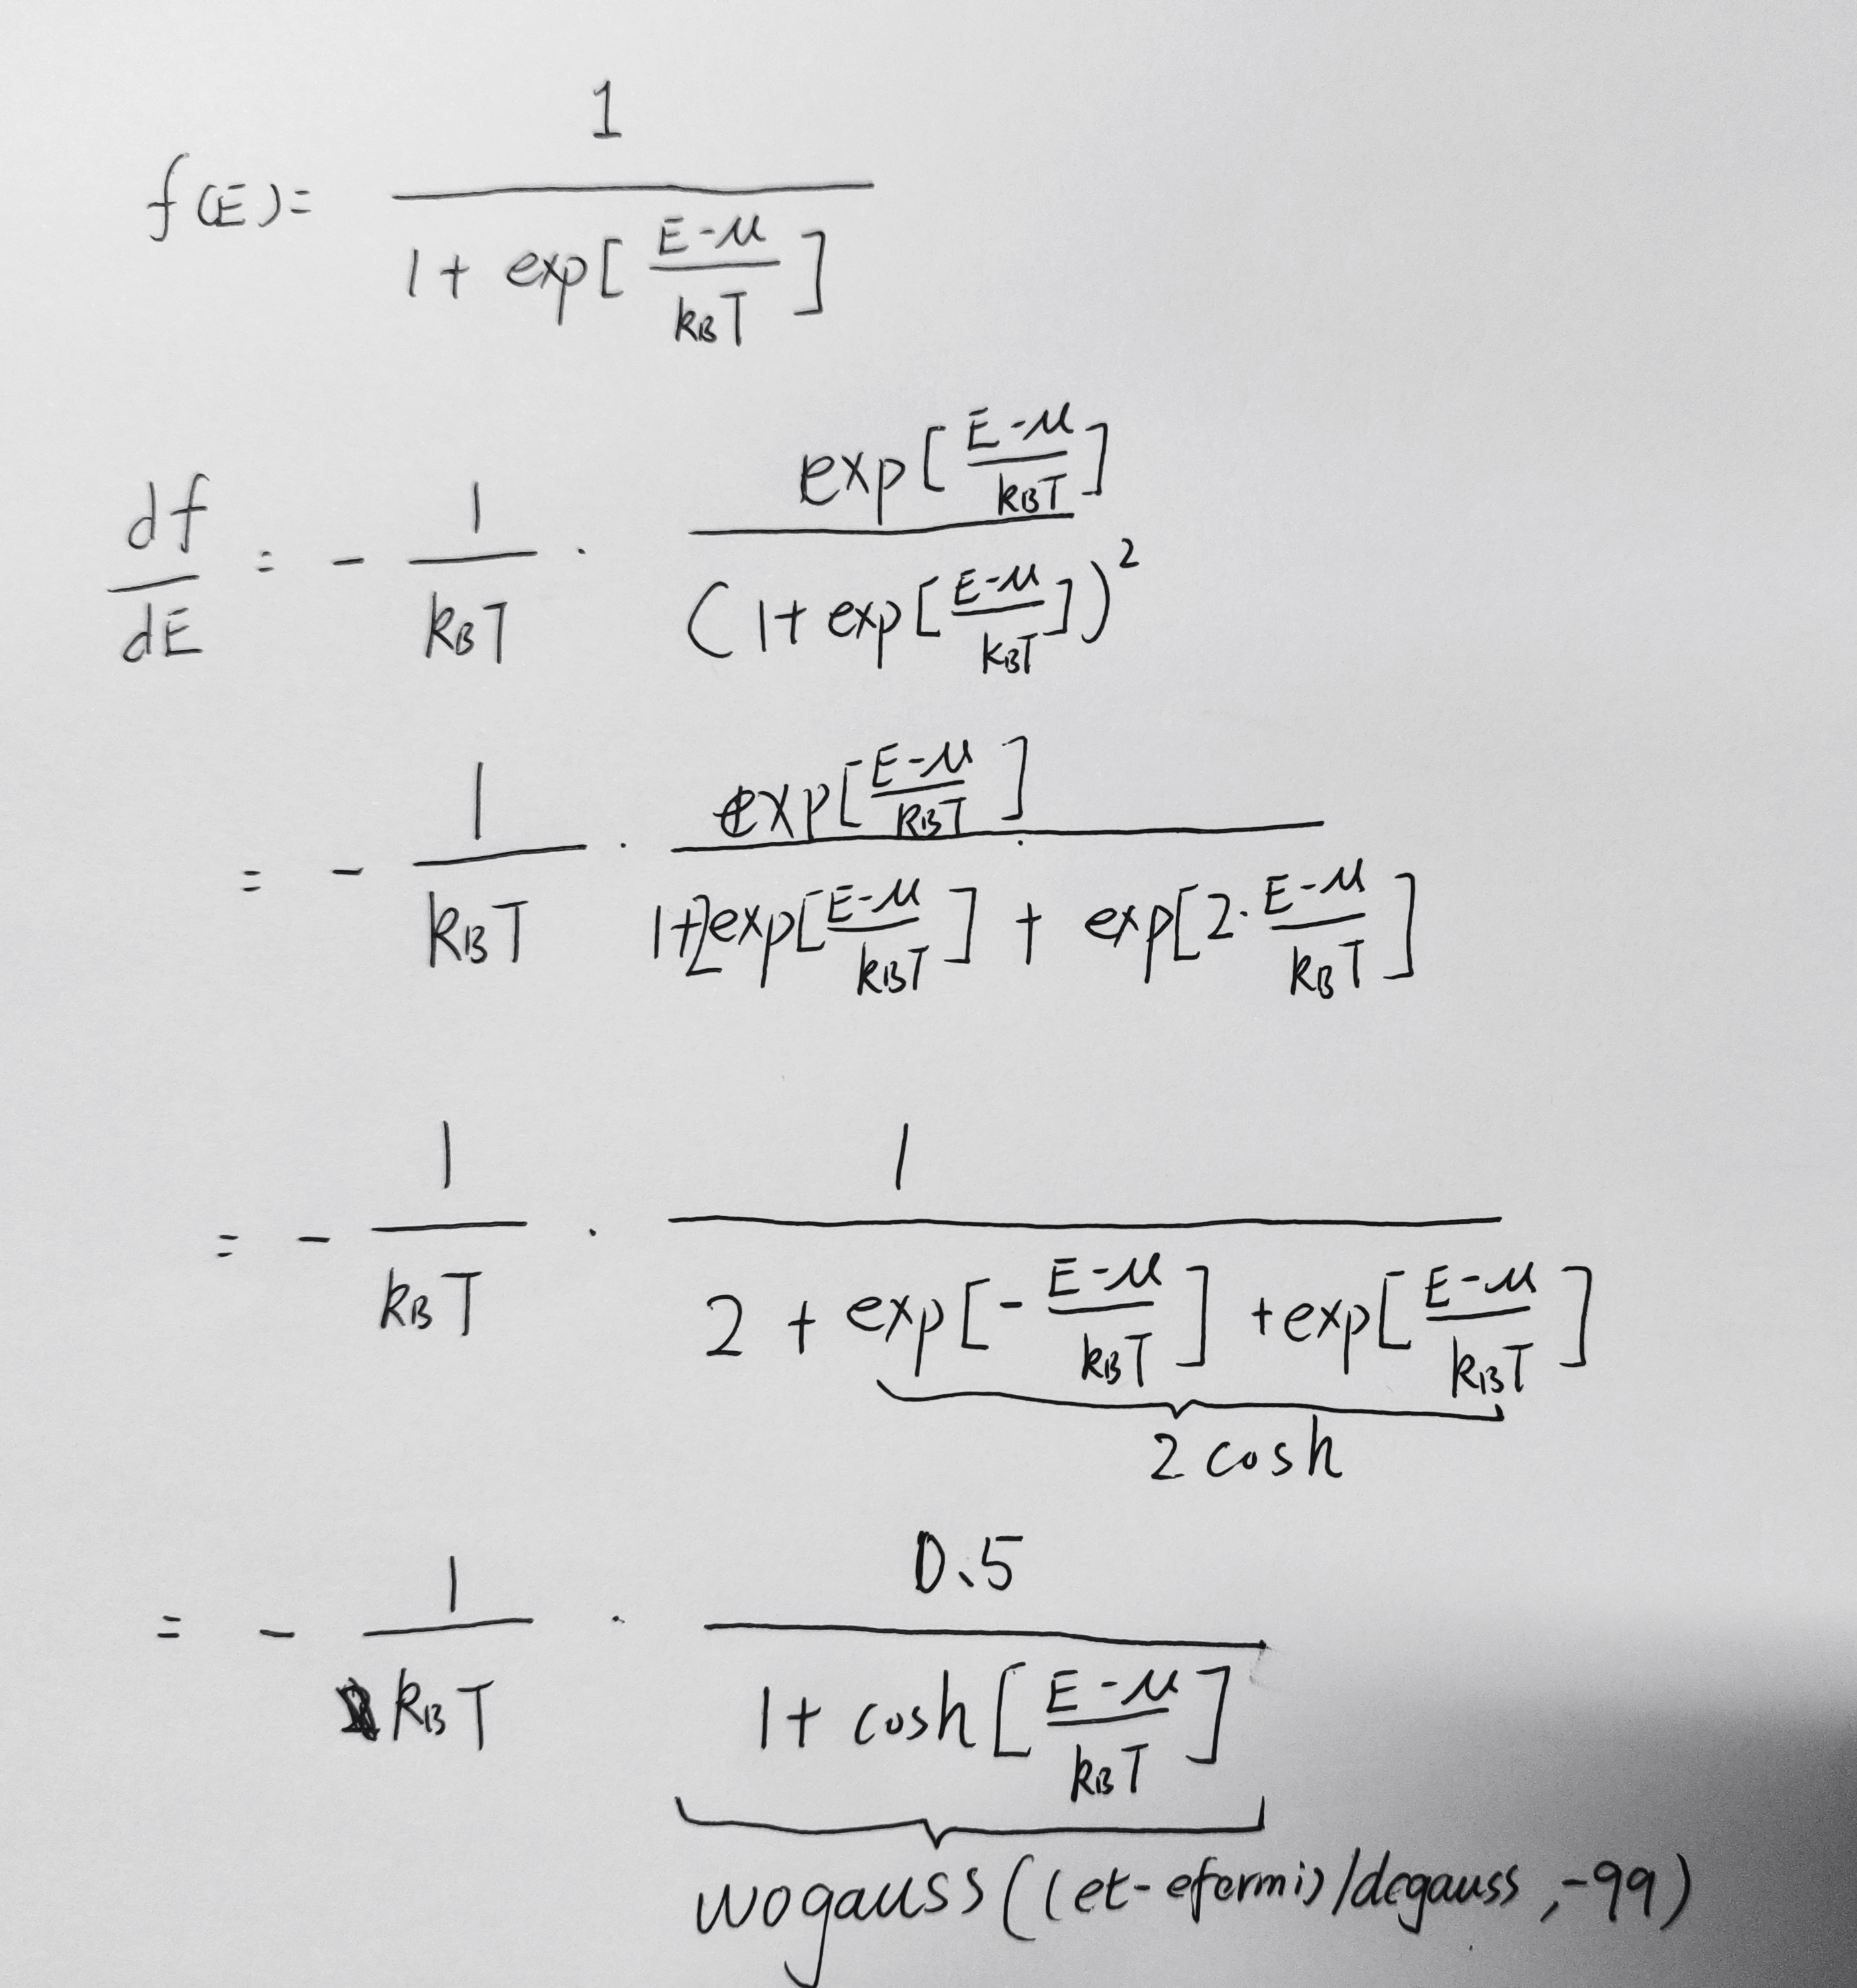 f(E) = 1 / (1 + exp[(E-μ)/(k_BT)])
df/dE = - 1/(k_BT) · exp[(E-μ)/(k_BT)] / (1 + exp[(E-μ)/(k_BT)])²
= - 1/(k_BT) · exp[(E-μ)/(k_BT)] / (1 + 2exp[(E-μ)/(k_BT)] + exp[2·(E-μ)/(k_BT)])
= - 1/(k_BT) · 1 / (2 + exp[-(E-μ)/(k_BT)] + exp[(E-μ)/(k_BT)])
2 cosh
= - 1/(k_BT) · 0.5 / (1 + cosh[(E-μ)/(k_BT)])
wogauss((et-efermi)/degauss,-99)